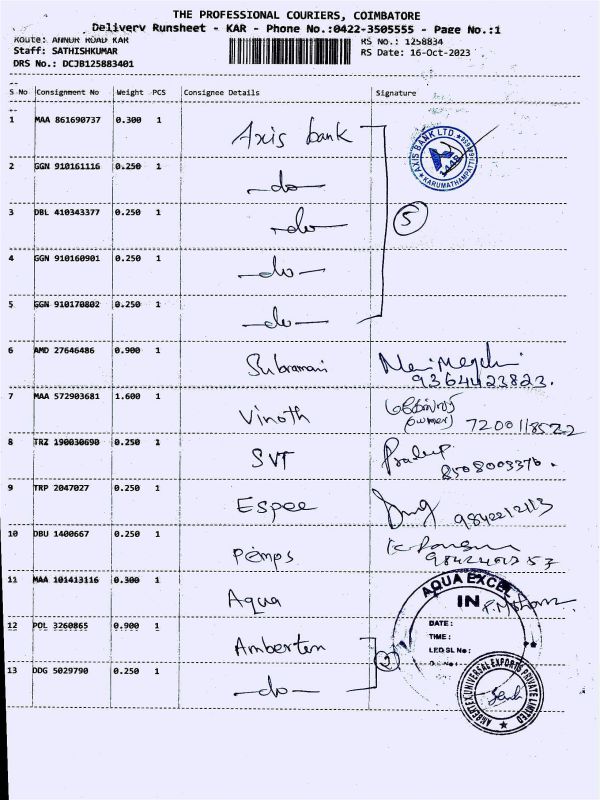 THE PROFESSIONAL COURIERS, COIMBATORE
Delivery Runsheet - KAR - Phone No.:0422-3505555 - Page No.:1
Route: ANNUR ROAD KAR RS No.: 1258834
Staff: SATHISHKUMAR RS Date: 16-Oct-2023
DRS No.: DCJB125883401
S No Consignment No Weight PCS Consignee Details Signature
1 MAA 861690737 0.300 1 Axis bank
AXIS BANK LTD. KARUMATHAMPATTI
2 GGN 910161116 0.250 1 -do-
3 DBL 410343377 0.250 1 -do- 5
4 GGN 910160901 0.250 1 -do-
5 GGN 910170802 0.250 1 -do-
6 AMD 27646486 0.900 1 Subramani
9364423823.
7 MAA 572903681 1.600 1 Vinoth
(owner)
8 TRZ 190030690 0.250 1 SVT Pradeep
9 TRP 2047027 0.250 1 Espee
9842212113
10 DBU 1400667 0.250 1 Pemps
11 MAA 101413116 0.300 1 Aqua
AQUA EXCEL
IN
DATE :
TIME :
12 POL 3260865 0.900 1 Amberten 2
13 DDG 5029790 0.250 1 -do-
AMBERTEX UNIVERSAL EXPORTS PRIVATE LIMITED